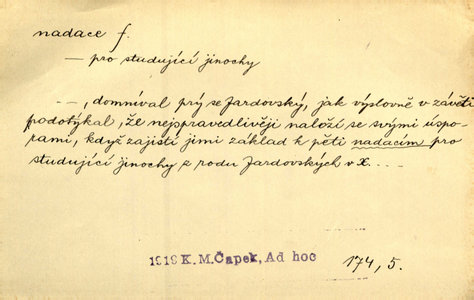 nadace f.
— pro studující jinochy
— -, domníval prý se Jardovský, jak výslovně v závěti
podotýkal, že nejspravedlivěji naloží se svými úspo-
rami, když zajistí jimi základ k pěti nadacím pro
studující jinochy z rodu Jardovských v X. . . .
1919 K. M. Čapek, Ad hoc
174, 5.